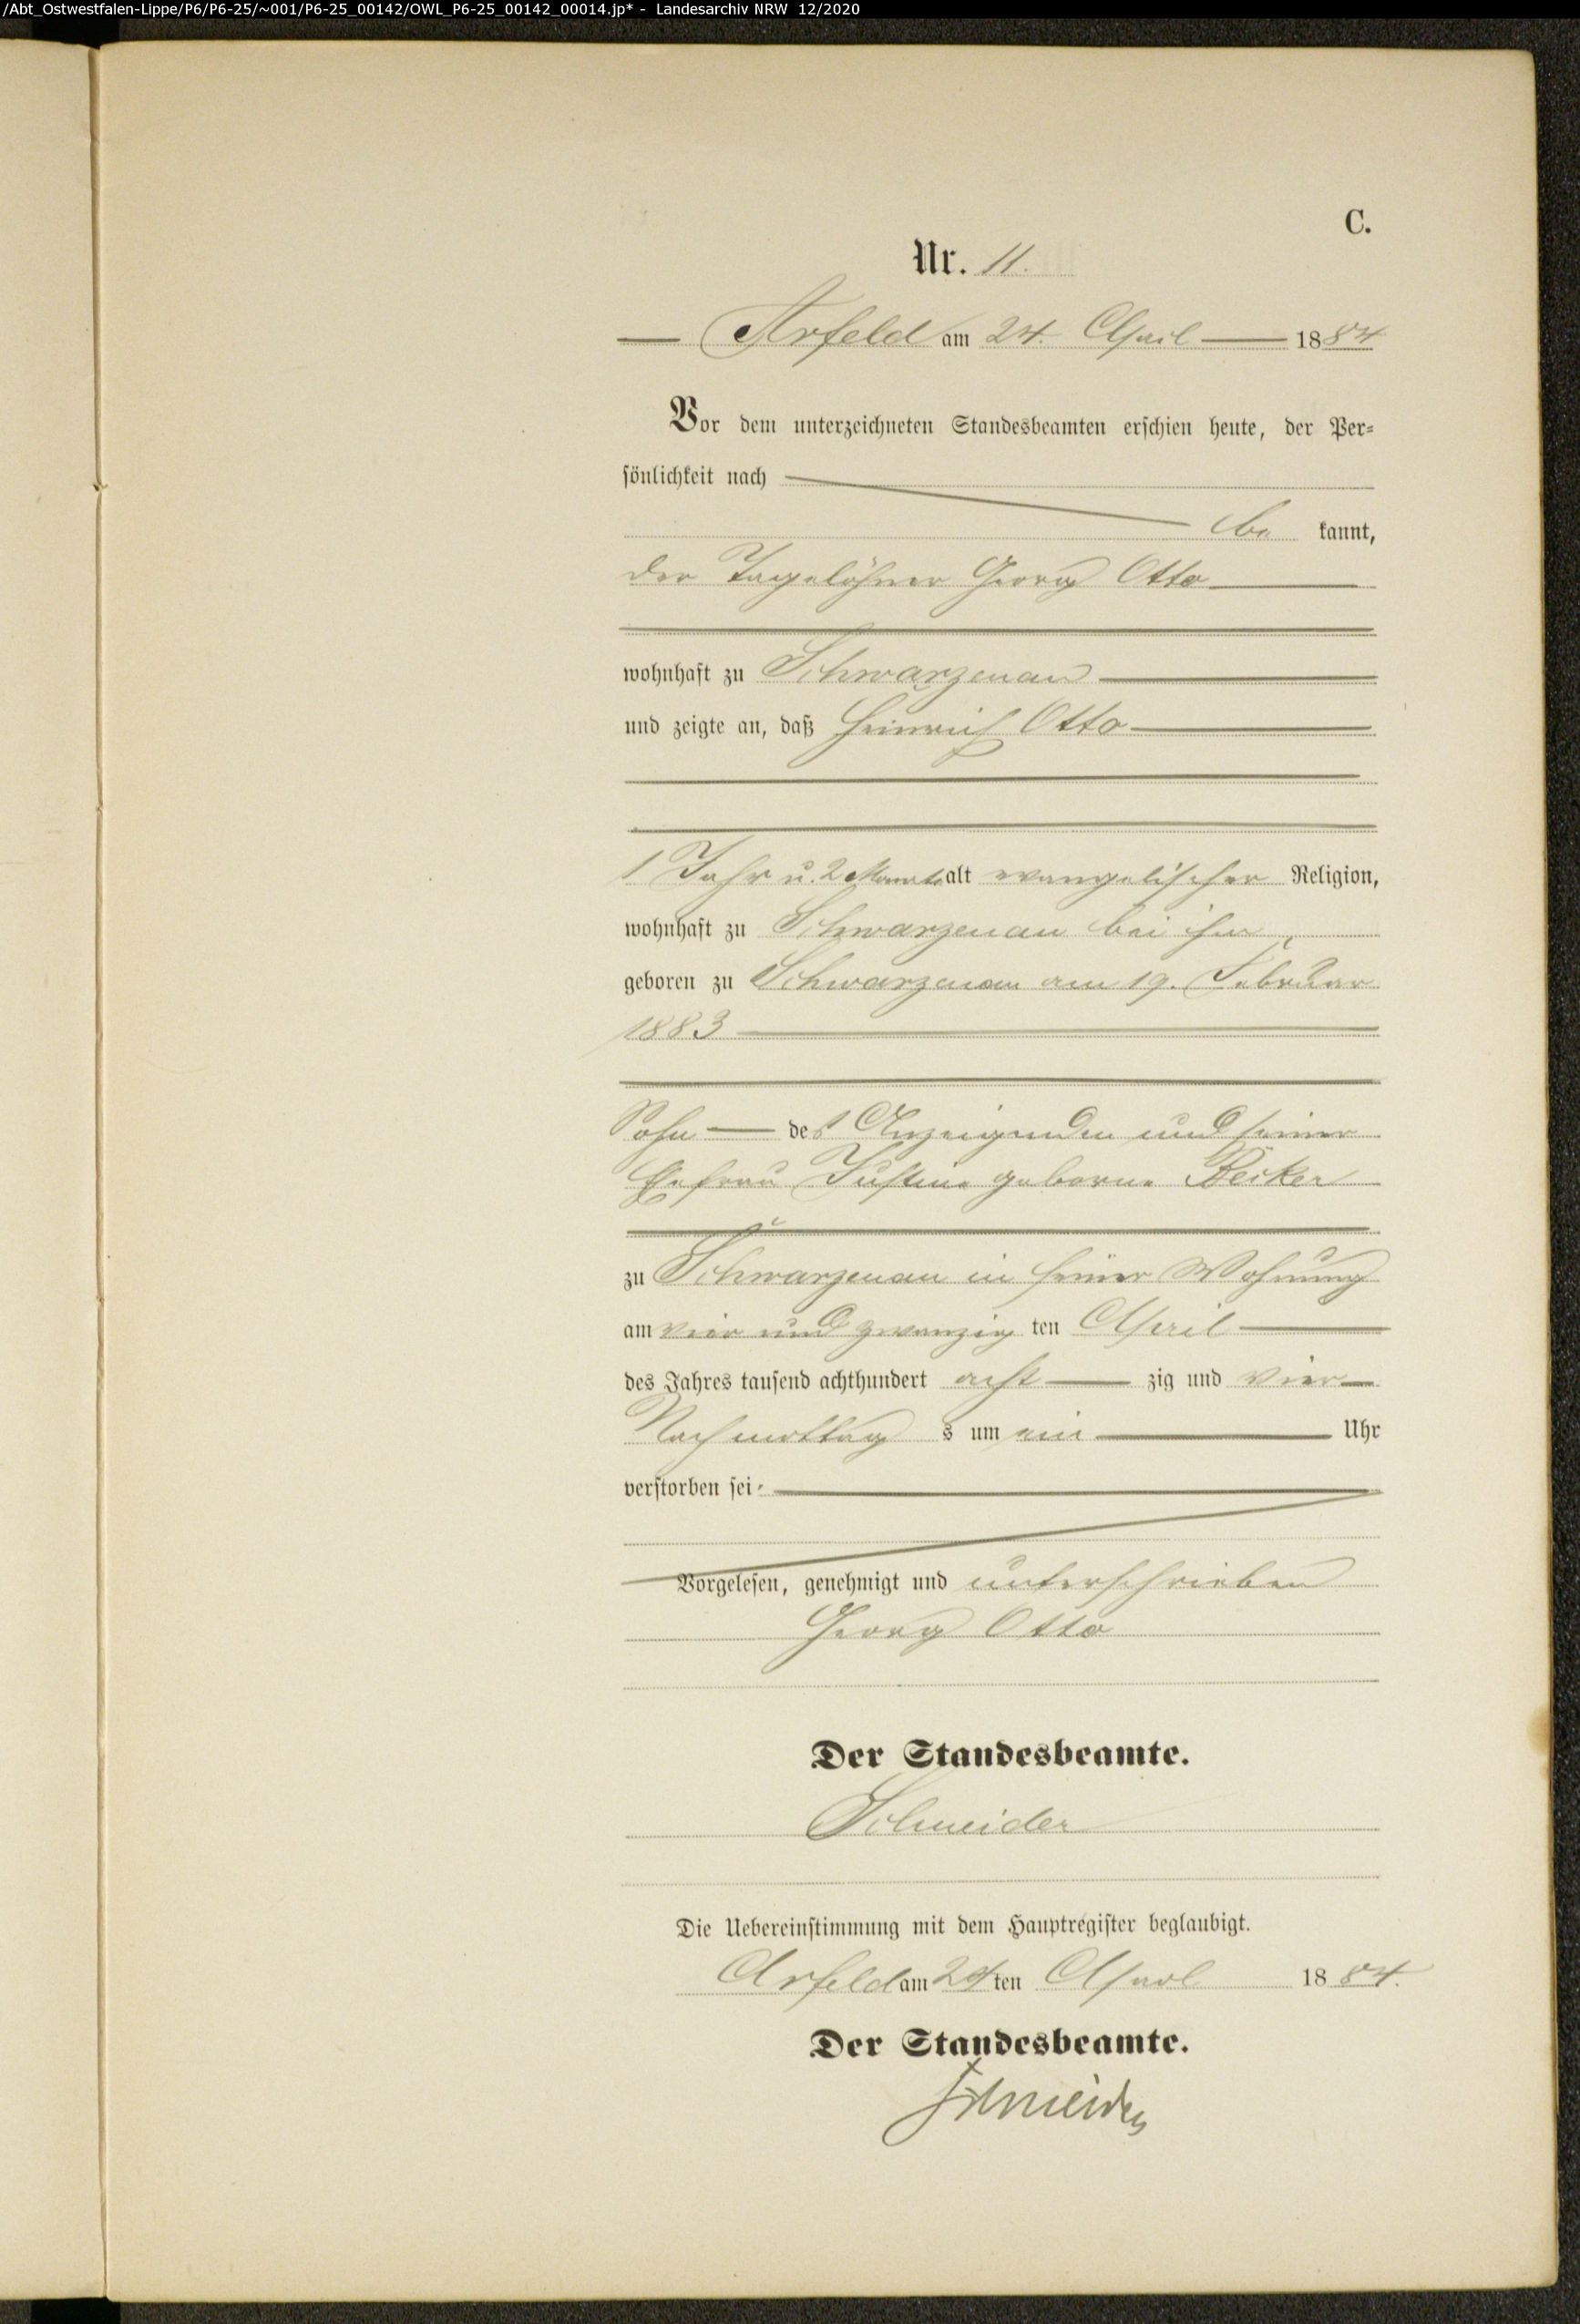 /Abt_Ostwestfalen-Lippe/P6/P6-25/~001/P6-25_00142/OWL_P6-25_00142_00014.jp* - Landesarchiv NRW 12/2020
C.
Nr. 11.
Arfeld am 24. April 1884
Vor dem unterzeichneten Standesbeamten erschien heute, der Per-
sönlichkeit nach
be kannt,
der Tagelöhner Georg Otto
wohnhaft zu Schwarzenau
und zeigte an, daß Heinrich Otto
1 Jahr u. 2 Monate alt evangelischer Religion,
wohnhaft zu Schwarzenau bei ihm,
geboren zu Schwarzenau am 19. Februar
1883
Sohn des Anzeigenden und seiner
Ehefrau Justine geborne Becker
zu Schwarzenau in seiner Wohnung
am vier und zwanzig ten April
des Jahres tausend achthundert acht zig und vier
Nachmittag s um ein Uhr
verstorben sei.
Vorgelesen, genehmigt und unterschrieben
Georg Otto
Der Standesbeamte.
Schneider
Die Uebereinstimmung mit dem Hauptregister beglaubigt.
Arfeld am 24 ten April 1884.
Der Standesbeamte.
Schneider